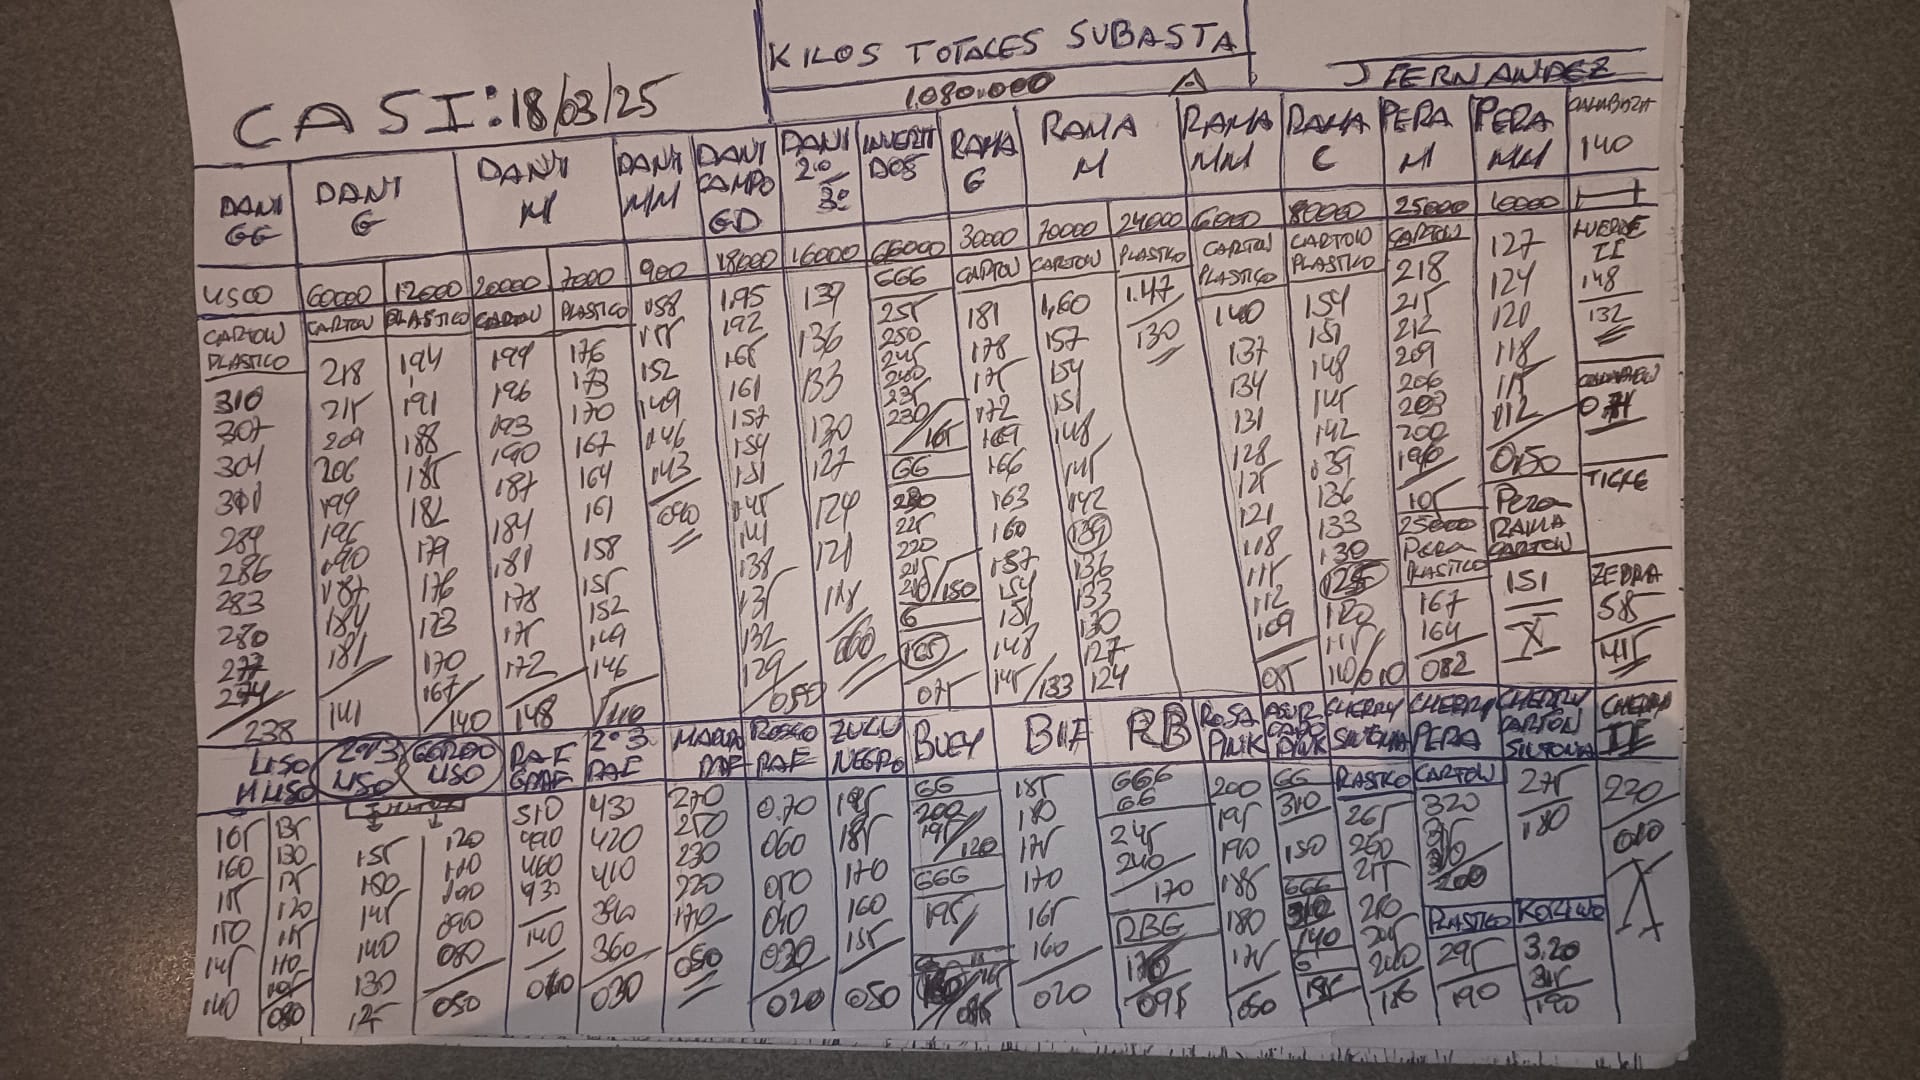 KILOS TOTALES SUBASTA
1.080.000
J FERNANDEZ
CASI: 18/03/25
DANI GG
DANI G
DANI M
DANI MM
DANI CAMPO GD
DANI 2º 3º
INVERTIDOS
RAMA G
RAMA M
RAMA MM
RAMA C
PERA M
PERA MM
140
60000 12000 20000 7000 900 18000 16000 66000 30000 70000 24000 6000 80000 25000 10000
CARTON PLASTICO
310
307
304
301
289
286
283
280
277
274
238
CARTON
218
215
209
206
199
196
190
187
184
181
141
PLASTICO
194
191
188
185
182
179
176
173
170
167
140
CARTON
199
196
193
190
187
184
181
178
175
172
148
PLASTICO
176
173
170
167
164
161
158
155
152
149
146
110
158
155
152
149
146
143
090
1.95
192
165
161
157
154
151
145
141
138
135
132
129
050
139
136
133
130
127
124
121
118
060
GGG
255
250
245
240
235
230/165
GG
230
225
220
215
210/150
G
165
075
CARTON
181
178
175
172
169
166
163
160
157
154
151
148
145/133
CARTON
1,60
157
154
151
148
145
142
139
136
133
130
127
124
PLASTICO
1.47
130
CARTON PLASTICO
140
137
134
131
128
125
121
118
115
112
109
085
CARTON PLASTICO
154
151
148
145
142
139
136
133
130
125
120
115
110/010
CARTON
218
215
212
209
206
203
200
196
105
25000
Pera PLASTICO
167
164
082
127
124
120
118
115
112
0,50
Pera RAMA CARTON
151
X
148
132
TIGRE
ZEBRA
585
415
LISO
165
160
155
150
145
140
M LISO
135
130
125
120
115
110
105
080
2º Y 3 LISO
155
150
145
140
130
125
GORDO LISO
120
110
100
090
080
050
RAF GRANDE
510
490
460
430
140
2º 3 RAF
430
420
410
390
360
030
270
250
230
220
170
050
ROSCO RAF
0.70
060
050
040
030
020
ZULU NEGRO
195
185
170
160
155
050
BUEY
GG
200
195/120
GGG
195
BIF
185
180
175
170
165
160
020
RB
GGG
GG
245
240
170
RBG
170
095
ROSA PINK
200
195
190
185
180
175
050
ASURCADO PINK
GG
310
150
GGG
140
G
195
CHERRY SINTONIA
PLASTICO
265
260
255
250
245
240
186
CHERRY PERA
CARTON
320
315
310
200
PLASTICO
295
190
CHERRY CARTON SINTONIA
275
180
3.20
315
190
CHERRY II
220
010
X